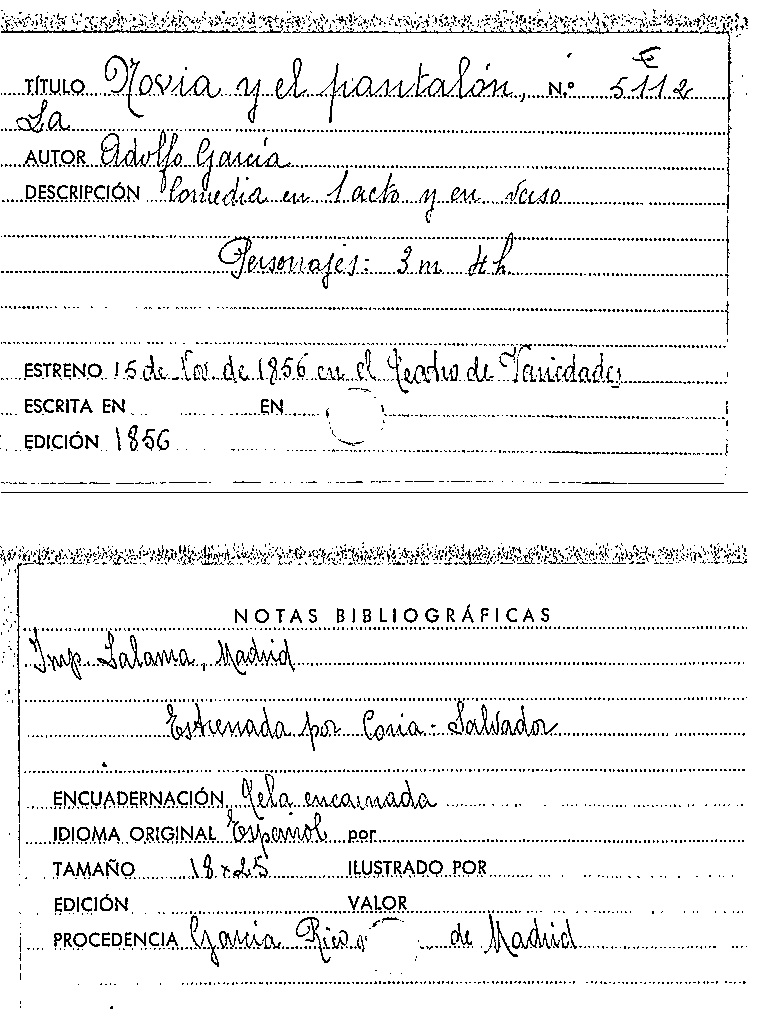 TÍTULO Novia y el pantalón, N.º 5112
La
AUTOR Adolfo García
DESCRIPCIÓN Comedia en 1 acto y en verso
Personajes: 3 m 4 h
ESTRENO 15 de Nov. de 1856 en el Teatro de Variedades
ESCRITA EN EN
EDICIÓN 1856
NOTAS BIBLIOGRÁFICAS
Imp. Lalama, Madrid
Estrenada por Coria - Salvador
ENCUADERNACIÓN Tela encarnada
IDIOMA ORIGINAL Español por
TAMAÑO 18 x 25 ILUSTRADO POR
EDICIÓN VALOR
PROCEDENCIA García de Madrid